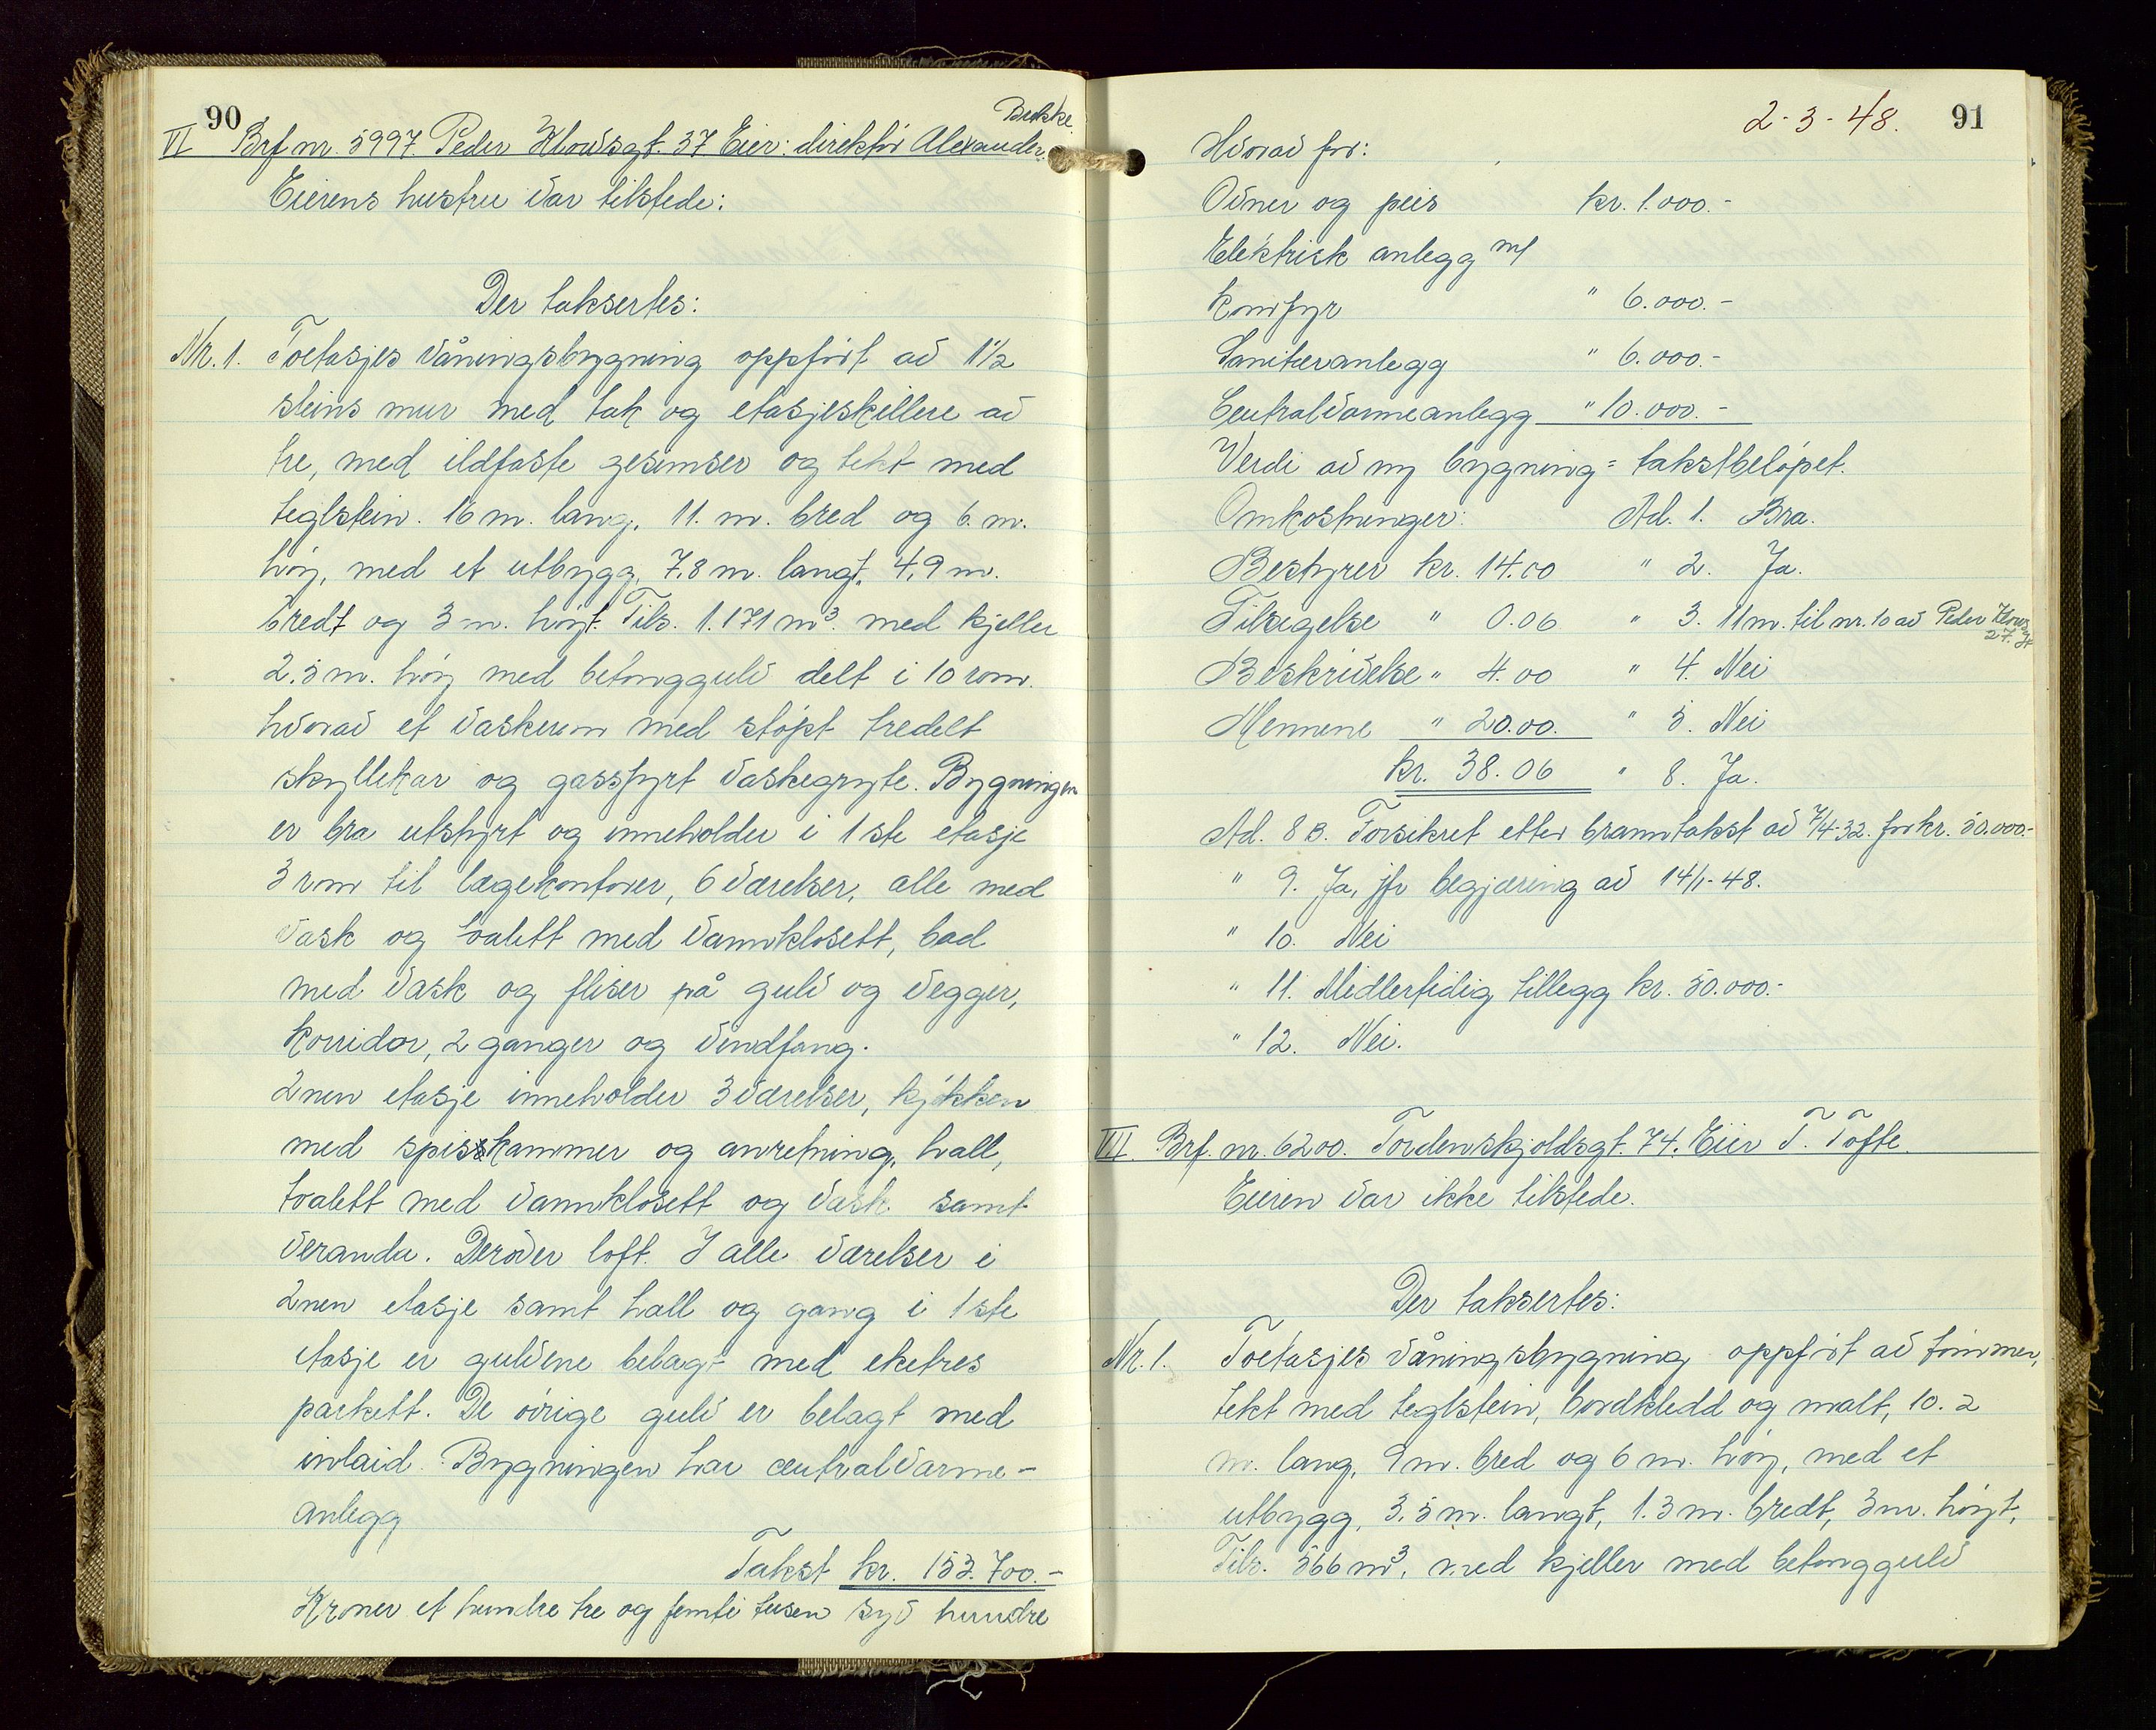 90
VI Brf nr. 5997. Peder Klowsgt. 37 Eier: direktør Alexander Bukke.
Eierens hustru var tilstede:
Der taksertes:
Nr. 1. Toetasjes våningsbygning oppført av 1 1/2
steins mur med tak og etasjeskillere av
tre, med ildfaste gesimser og tekt med
teglstein. 16 m. lang, 11. m. bred og 6. m.
høy, med et utbygg, 7,8 m. langt, 4,9 m.
bredt og 3 m. høyt. Tils. 1.171 m³. med kjeller
2.5 m. høy med betonggulv delt i 10 rom.
hvorav et vaskerom med støpt tredelt
skyllekar og gassfyrt vaskegryte. Bygningen
er bra utstyrt og inneholder i 1ste etasje
3 rom til lægekontorer, 6 værelser, alle med
vask og toalett med vannklosett, bad
med vask og fliser på gulv og vegger,
korridor, 2 ganger og vindfang.
2nen etasje inneholder 3 værelser, kjøkken
med spisskammer og anretning, hall,
toalett med vannklosett og vask samt
veranda. Derover loft. I alle værelser i
2nen etasje samt hall og gang i 1ste
etasje er gulvene belagt med eketres
parkett. De øvrige gulv er belagt med
inlaid. Bygningen har centralvarme-
anlegg
Takst kr. 153.700.-
Kroner et hundre tre og femti tusen syv hundre
2-3-48. 91
Hvorav for:
Ovner og peis kr. 1.000.-
Elektrisk anlegg m/
komfyr " 6.000.-
Sanitæranlegg " 6.000.-
Centralvarmeanlegg " 10.000.-
Verdi av ny bygning = takstbeløpet.
Omkostninger: Ad. 1. Bra.
Bestyrer kr. 14.00 " 2. Ja.
Tilsigelse " 0.06 " 3. 11 m. til nr. 10 av Peder Klowsgt 27.
Beskrivelse " 4.00 " 4. Nei
Mennene " 20.00. " 5. Nei
kr. 38.06 " 8. Ja.
Ad. 8 B. Forsikret etter branntakst av 7/4-32. for kr. 50.000.-
" 9. Ja, jfr begjæring av 14/1-48.
" 10. Nei
" 11. Midlertidig tillegg kr. 50.000.-
" 12. Nei.
VII. Brf. nr. 6200. Tordenskjoldsgt. 74. Eier T. Tofte.
Eieren var ikke tilstede.
Der taksertes:
Nr. 1. Toetasjes våningsbygning oppført av tømmer,
tekt med teglstein, bordkledd og malt, 10.2
m. lang, 9 m. bred og 6 m. høy, med et
utbygg, 3,5 m. langt, 1.3 m. bredt, 3 m. høyt,
Tils. 566 m³, med kjeller med betonggulv